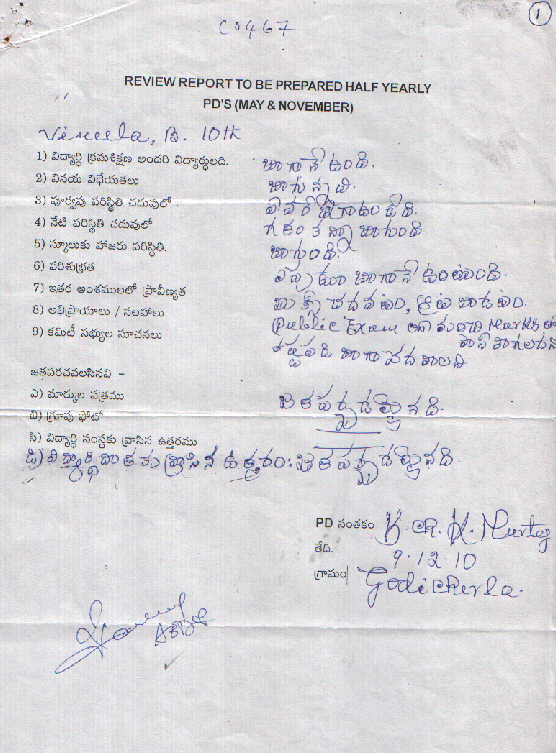 1
C0467
REVIEW REPORT TO BE PREPARED HALF YEARLY
PD'S (MAY & NOVEMBER)
Vineela, B. 10th
1) విద్యార్థి క్రమశిక్షణ అందరి విద్యార్థులది. బాగానే ఉంది.
2) వినయ విధేయతలు బాగున్నవి.
3) పూర్వపు పరిస్థితి చదువులో
4) నేటి పరిస్థితి చదువులో గతం కన్నా బాగుంది
5) స్కూలుకు హాజరు పరిస్థితి. బాగుంది.
6) పరిశుభ్రత ఎప్పుడూ బాగానే ఉంటుంది.
7) ఇతర అంశములలో ప్రావీణ్యత
8) అభిప్రాయాలు / సలహాలు Public Exam లో మంచి Marks
9) కమిటీ సభ్యుల సూచనలు కష్టపడి బాగా చదవాలని
జతపరచవలసినవి -
ఎ) మార్కుల పత్రము జతపర్చడమైనది.
బి) గ్రూపు ఫోటో
సి) విద్యార్థి సంస్థకు వ్రాసిన ఉత్తరము
డి) విద్యార్థి దాతకు వ్రాసిన ఉత్తరం: జతపర్చడమైనది.
PD సంతకం K. Murty
తేది. 9.12.10
గ్రామం Godicherla.